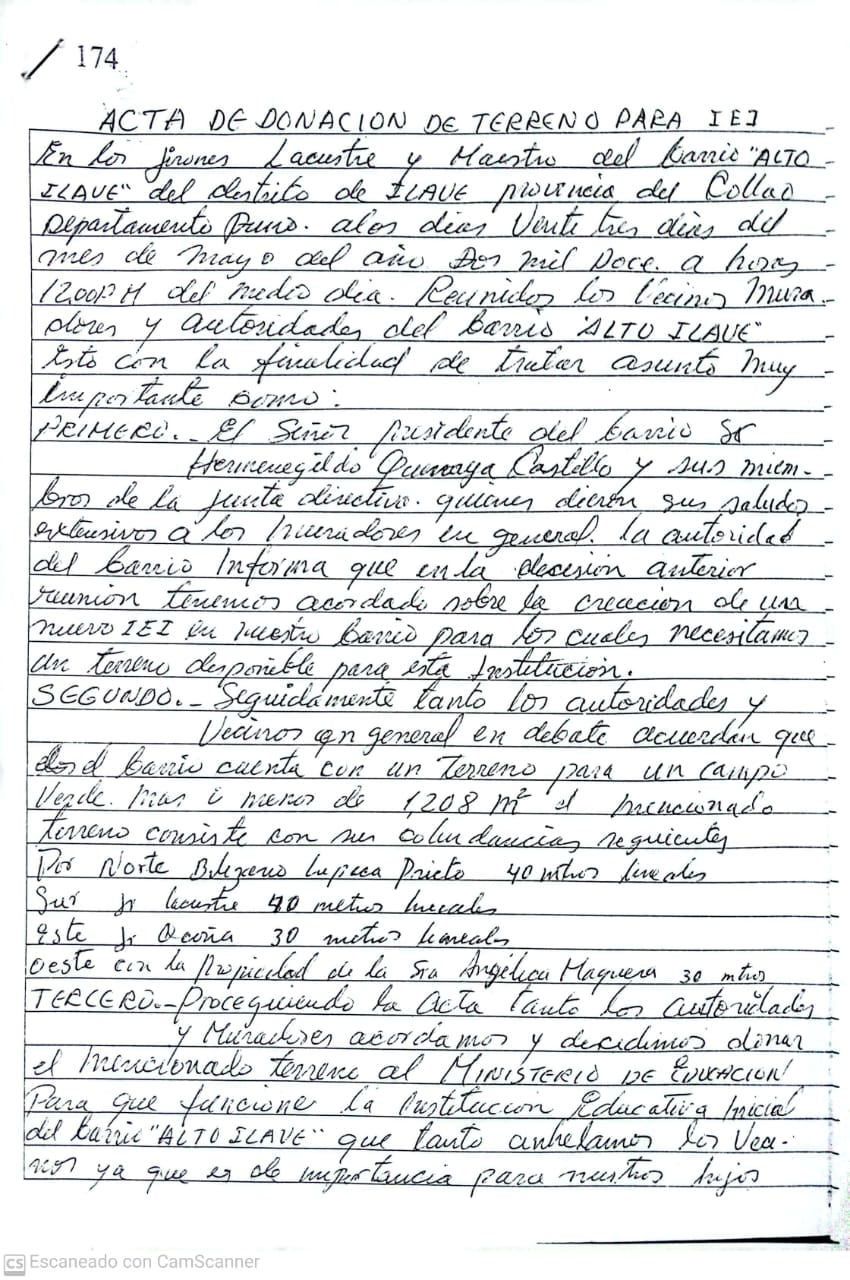 174
ACTA DE DONACION DE TERRENO PARA IEI
En los jirones Lacustre y Maestro del barrio "ALTO
ILAVE" del distrito de ILAVE provincia del Collao
Departamento Puno. alos dias Vente tres dias del
mes de Mayo del año Dos mil Doce. a horas
1200PM del medio dia. Reunidos los Vecinos Mura-
dores y autoridades del barrio "ALTO ILAVE"
Esto con la finalidad de tratar asunto Muy
importante como:
PRIMERO.- El Señor presidente del barrio Sr
Hermenegildo Castillo y sus miem-
bros de la junta directiva. quienes dieron sus saludos
extensivos a los Muradores en general. la autoridad
del barrio Informa que en la decisión anterior
reunión tenemos acordado sobre la creacion de una
nuevo IEI en nuestro barrio para los cuales necesitamos
un terreno disponible para esta Institución.
SEGUNDO.- Seguidamente tanto los autoridades y
Vecinos en general en debate acuerdan que
el barrio cuenta con un terreno para un campo
Verde. Mas o menos de 1,208 m² el mencionado
terreno consiste con sus colundancias seguientes
Por Norte Lupaca Prieto 40 mtros lineales
Sur Jr lacustre 40 metros lineales
Este Jr Ocoña 30 metros lineales
Oeste con la Propiedad de la Sra Angélica Maquera 30 mtros
TERCERO.- Proceguiendo la Acta tanto los autoridades
y Muradores acordamos y decidimos donar
el mencionado terreno al MINISTERIO DE EDUCACION
Para que funcione la Institucion Educativa Inicial
del barrio "ALTO ILAVE" que tanto anhelamos los Veci-
nos ya que es de importancia para nuestros hijos
CS Escaneado con CamScanner